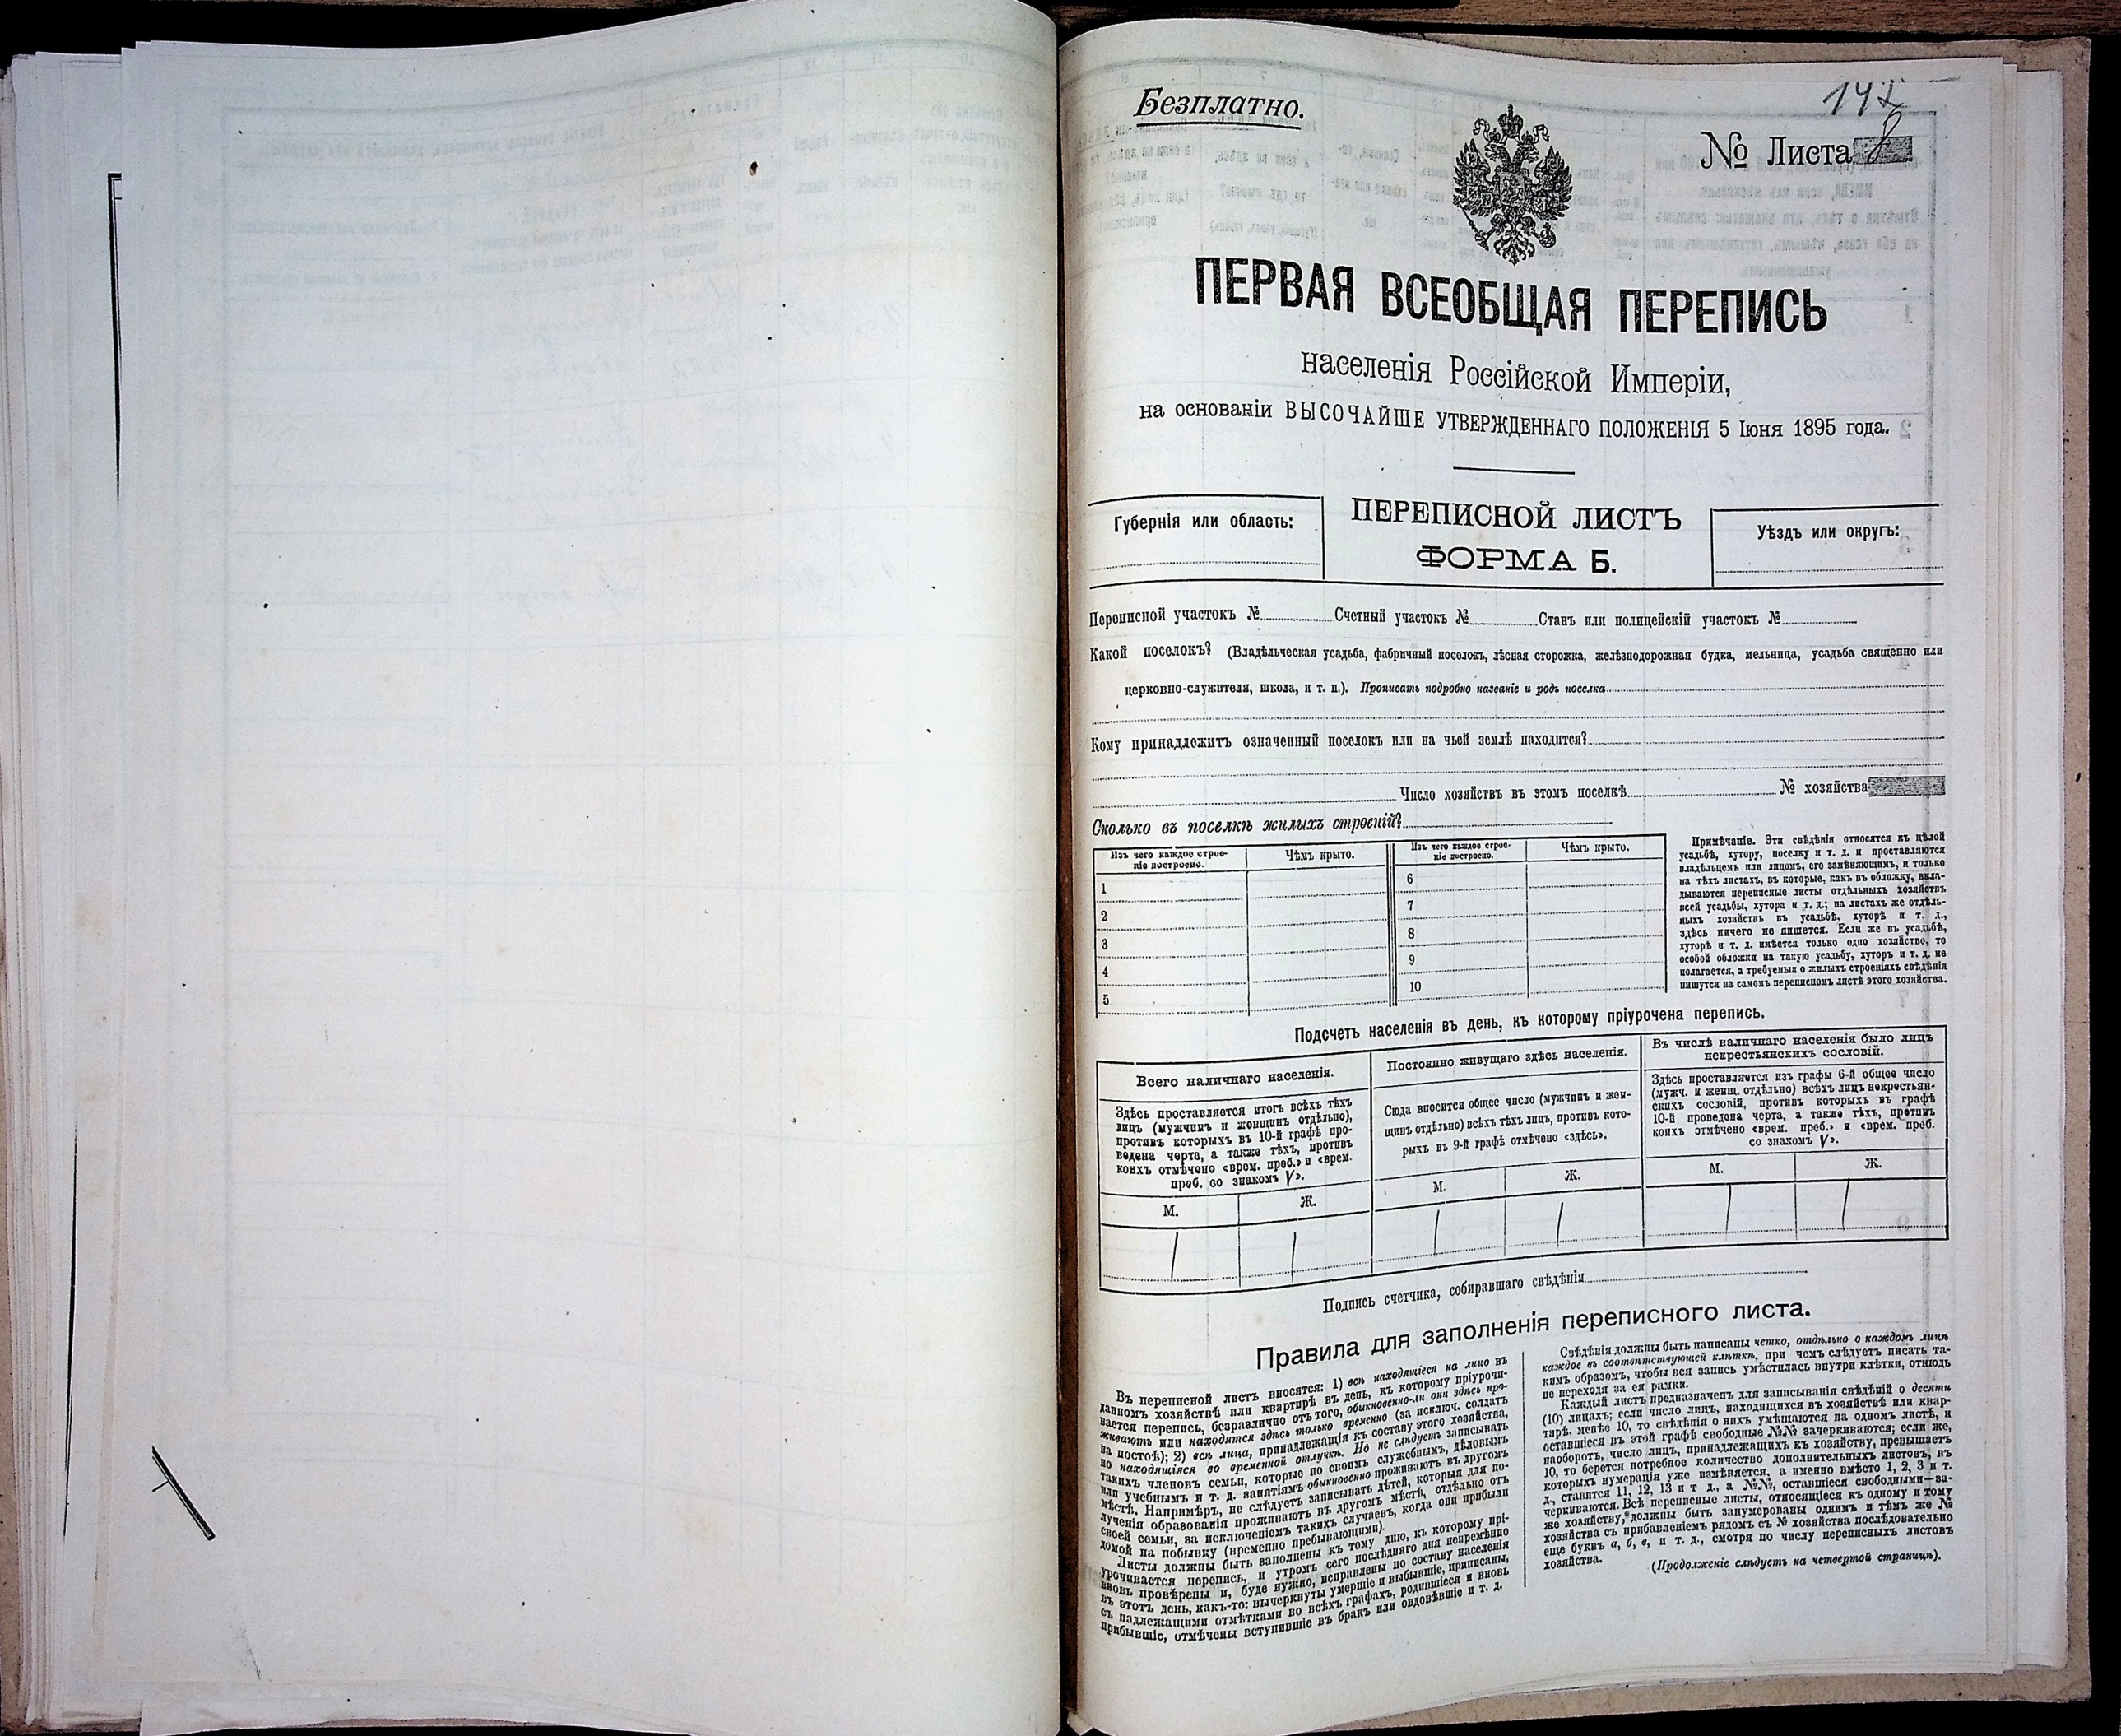 Безплатно.
147
№ Листа 8
ПЕРВАЯ ВСЕОБЩАЯ ПЕРЕПИСЬ
населенія Россійской Имперіи,
на основаніи ВЫСОЧАЙШЕ УТВЕРЖДЕННАГО ПОЛОЖЕНІЯ 5 Іюня 1895 года.
Губернія или область:
ПЕРЕПИСНОЙ ЛИСТЪ
ФОРМА Б.
Уѣздъ или округъ:
Переписной участокъ № Счетный участокъ № Станъ или полицейскій участокъ №
Какой поселокъ? (Владѣльческая усадьба, фабричный поселокъ, лѣсная сторожка, желѣзнодорожная будка, мельница, усадьба священно или
церковно-служителя, школа, и т. п.). Прописать подробно названіе и родъ поселка
Кому принадлежитъ означенный поселокъ или на чьей землѣ находится?
Число хозяйствъ въ этомъ поселкѣ № хозяйства
Сколько въ поселкѣ жилыхъ строеній?
Изъ чего каждое строе-
ніе построено.
Чѣмъ крыто.
1
2
3
4
5
Изъ чего каждое строе-
ніе построено.
Чѣмъ крыто.
6
7
8
9
10
Примѣчаніе. Эти свѣдѣнія относятся къ цѣлой
усадьбѣ, хутору, поселку и т. д. и проставляются
владѣльцемъ или лицомъ, его замѣняющимъ, и только
на тѣхъ листахъ, въ которые, какъ въ обложку, вкла-
дываются переписные листы отдѣльныхъ хозяйствъ
всей усадьбы, хутора и т. д.; на листахъ же отдѣль-
ныхъ хозяйствъ въ усадьбѣ, хуторѣ и т. д.,
здѣсь ничего не пишется. Если же въ усадьбѣ,
хуторѣ и т. д. имѣется только одно хозяйство, то
особой обложки на такую усадьбу, хуторъ и т. д. не
полагается, а требуемыя о жилыхъ строеніяхъ свѣдѣнія
пишутся на самомъ переписномъ листѣ этого хозяйства.
Подсчетъ населенія въ день, къ которому пріурочена перепись.
Всего наличнаго населенія.
Здѣсь проставляется итогъ всѣхъ тѣхъ
лицъ (мужчинъ и женщинъ отдѣльно),
противъ которыхъ въ 10-й графѣ про-
ведена черта, а также тѣхъ, противъ
коихъ отмѣчено «врем. преб.» и «врем.
преб. со знакомъ V».
М. Ж.
Постоянно живущаго здѣсь населенія.
Сюда вносится общее число (мужчинъ и жен-
щинъ отдѣльно) всѣхъ тѣхъ лицъ, противъ кото-
рыхъ въ 9-й графѣ отмѣчено «здѣсь».
М. Ж.
Въ числѣ наличнаго населенія было лицъ
некрестьянскихъ сословій.
Здѣсь проставляется изъ графы 6-й общее число
(мужч. и женщ. отдѣльно) всѣхъ лицъ некрестьян-
скихъ сословій, противъ которыхъ въ графѣ
10-й проведена черта, а также тѣхъ, противъ
коихъ отмѣчено «врем. преб.» и «врем. преб.
со знакомъ V».
М. Ж.
Подпись счетчика, собиравшаго свѣдѣнія
Правила для заполненія переписного листа.
Въ переписной листъ вносятся: 1) всѣ находящіеся на лицо въ
данномъ хозяйствѣ или квартирѣ въ день, къ которому пріурочи-
вается перепись, безразлично отъ того, обыкновенно-ли они здѣсь про-
живаютъ или находятся здѣсь только временно (за исключ. солдатъ
на постоѣ); 2) всѣ лица, принадлежащія къ составу этого хозяйства,
но находящіяся во временной отлучкѣ. Но не слѣдуетъ записывать
такихъ членовъ семьи, которые по своимъ служебнымъ, дѣловымъ
или учебнымъ и т. д. занятіямъ обыкновенно проживаютъ въ другомъ
мѣстѣ. Напримѣръ, не слѣдуетъ записывать дѣтей, которыя для по-
лученія образованія проживаютъ въ другомъ мѣстѣ, отдѣльно отъ
своей семьи, за исключеніемъ такихъ случаевъ, когда они прибыли
домой на побывку (временно пребывающими).
Листы должны быть заполнены къ тому дню, къ которому прі-
урочивается перепись, и утромъ сего послѣдняго дня непремѣнно
вновь провѣрены и, буде нужно, исправлены по составу населенія
въ этотъ день, какъ-то: вычеркнуты умершіе и выбывшіе, приписаны,
съ надлежащими отмѣтками во всѣхъ графахъ, родившіеся и вновь
прибывшіе, отмѣчены вступившіе въ бракъ или овдовѣвшіе и т. д.
Свѣдѣнія должны быть написаны четко, отдѣльно о каждомъ лицѣ
каждое въ соотвѣтствующей клѣткѣ, при чемъ слѣдуетъ писать та-
кимъ образомъ, чтобы вся запись умѣстилась внутри клѣтки, отнюдь
не переходя за ея рамки.
Каждый листъ предназначенъ для записыванія свѣдѣній о десяти
(10) лицахъ; если число лицъ, находящихся въ хозяйствѣ или квар-
тирѣ, менѣе 10, то свѣдѣнія о нихъ умѣщаются на одномъ листѣ, и
оставшіеся въ этой графѣ свободные №№ зачеркиваются; если же,
наоборотъ, число лицъ, принадлежащихъ къ хозяйству, превышаетъ
10, то берется потребное количество дополнительныхъ листовъ, въ
которыхъ нумерація уже измѣняется, а именно вмѣсто 1, 2, 3 и т.
д., ставится 11, 12, 13 и т д., а №№, оставшіеся свободными—за-
черкиваются. Всѣ переписные листы, относящіеся къ одному и тому
же хозяйству, должны быть занумерованы однимъ и тѣмъ же №
хозяйства съ прибавленіемъ рядомъ съ № хозяйства послѣдовательно
еще буквъ а, б, в, и т. д., смотря по числу переписныхъ листовъ
хозяйства.
(Продолженіе слѣдуетъ на четвертой страницѣ).